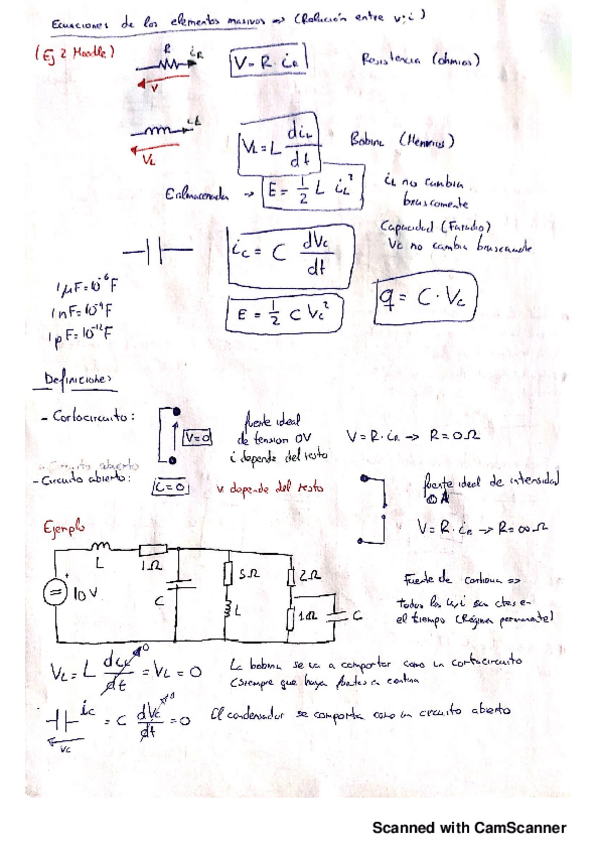 Ecuaciones de los elementos pasivos => (Relación entre v; i)
(Ej 2 Moodle) R iR V = R · iR Resistencia (ohmios)
V
iL VL = L diL/dt Bobina (Henrios)
VL
Ealmacenada → E = 1/2 L iL² iL no cambia
bruscamente
iC = C dVC/dt Capacidad (Faradio)
VC no cambia bruscamente
1 μF = 10⁻⁶ F
1 nF = 10⁻⁹ F
1 pF = 10⁻¹² F
E = 1/2 C VC² q = C · VC
Definiciones
- Cortocircuito: V=0 fuente ideal
de tension 0V V = R · iR → R = 0 Ω
i depende del resto
- Circuito abierto
- Circuito abierto: i=0 v depende del resto fuente ideal de intensidad
0A
V = R · iR → R = ∞ Ω
Ejemplo
L 1Ω C 5Ω L 2Ω 1Ω C
+ 10V
Fuente de continua =>
todas las v,i son ctes en
el tiempo (Régimen permanente)
VL = L diL/dt 0 = VL = 0 La bobina se va a comportar como un cortocircuito
(siempre que haya fuentes en continua
iC = C dVC/dt 0 = 0 El condensador se comporta como un circuito abierto
VC
Scanned with CamScanner